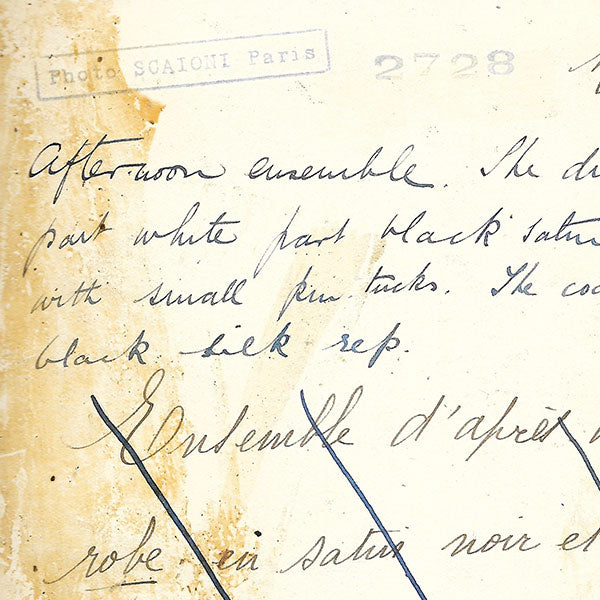 Photo SCAIONI Paris
2728
Afternoon ensemble. The
part white part black satin
with small pin tucks. The
black silk rep.
Ensemble d'après
robe en satin noir et